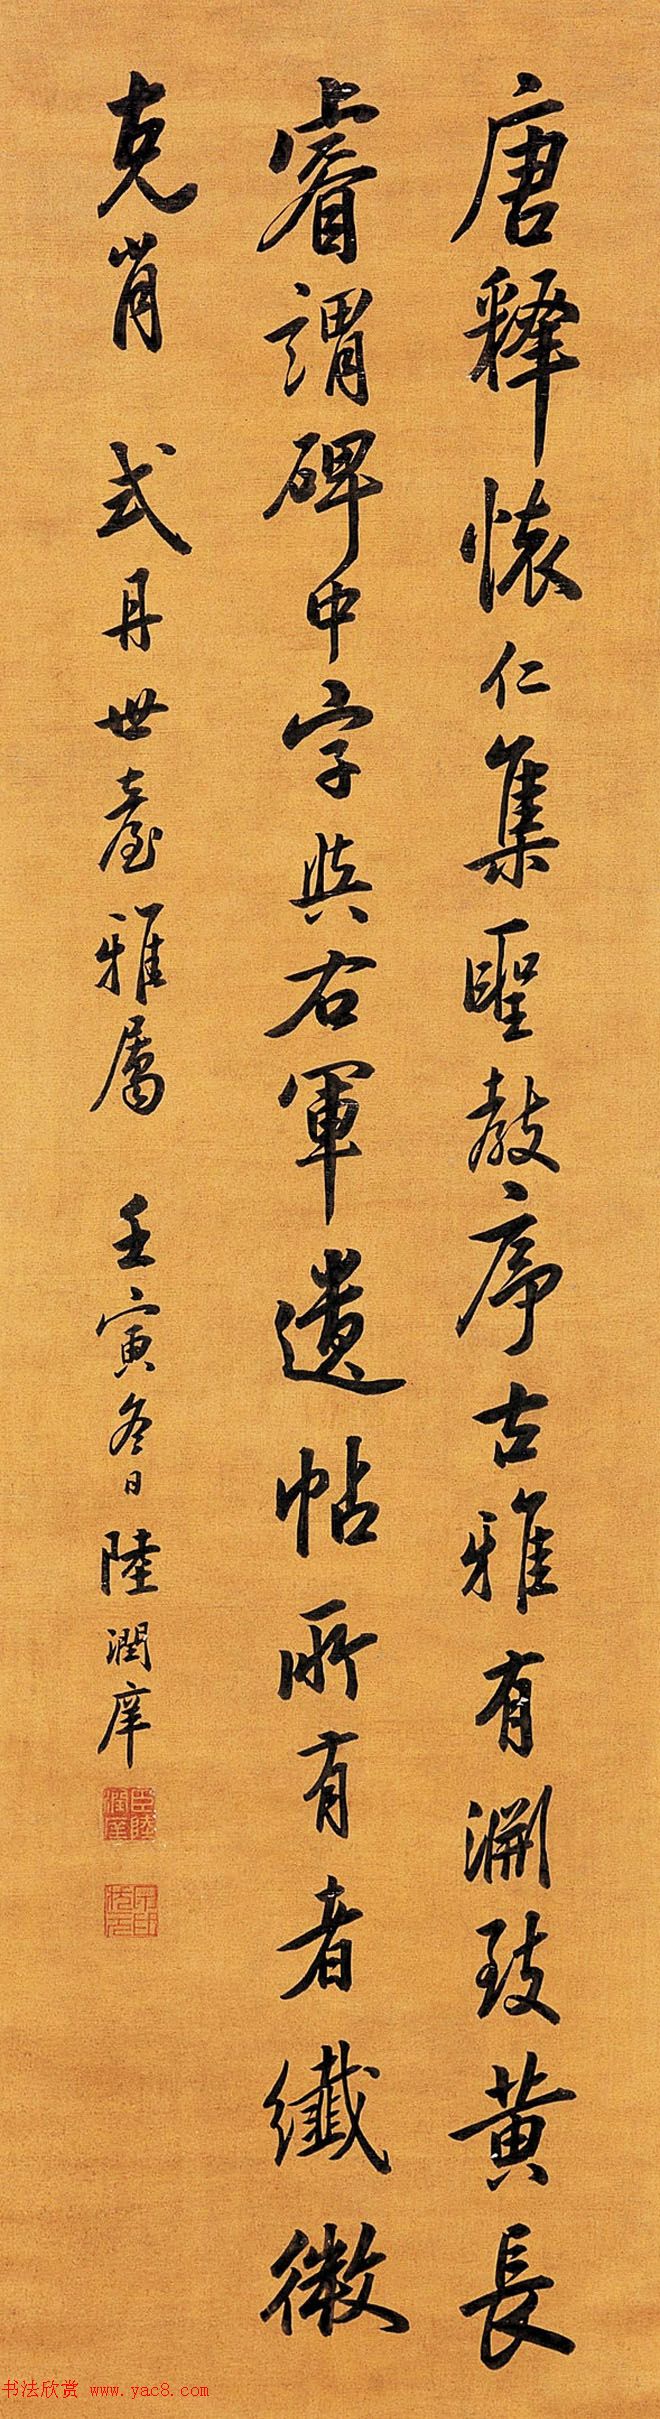 唐釋懷仁集聖教序古雅有淵致黃長
睿謂碑中字與右軍遺帖所有者纖微
克肖 式丹世臺雅屬 壬寅冬日陸潤庠
臣陸潤庠
书法欣赏 www.yac8.com